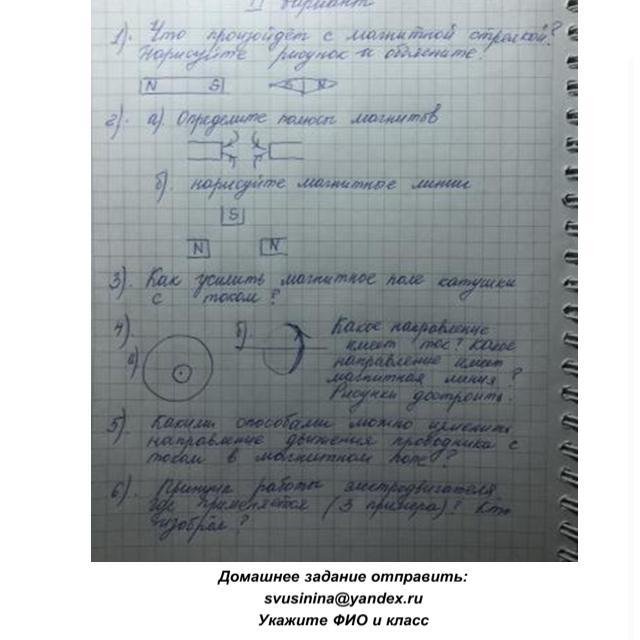 II вариант
1). Что произойдёт с магнитной стрелкой?
Нарисуйте рисунок и объясните.
N S S N
2). а) Определите полюсы магнитов
б). нарисуйте магнитные линии
S
N N
3). Как усилить магнитное поле катушки
с током?
4). а) б). Какое направление
имеет ток? Какое
направление имеет
магнитная линия?
Рисунки достроить.
5). Какими способами можно изменить
направление движения проводника с
током в магнитном поле?
6). Принцип работы электродвигателя,
где применяется (3 примера)? Кто
изобрёл?
Домашнее задание отправить:
svusinina@yandex.ru
Укажите ФИО и класс